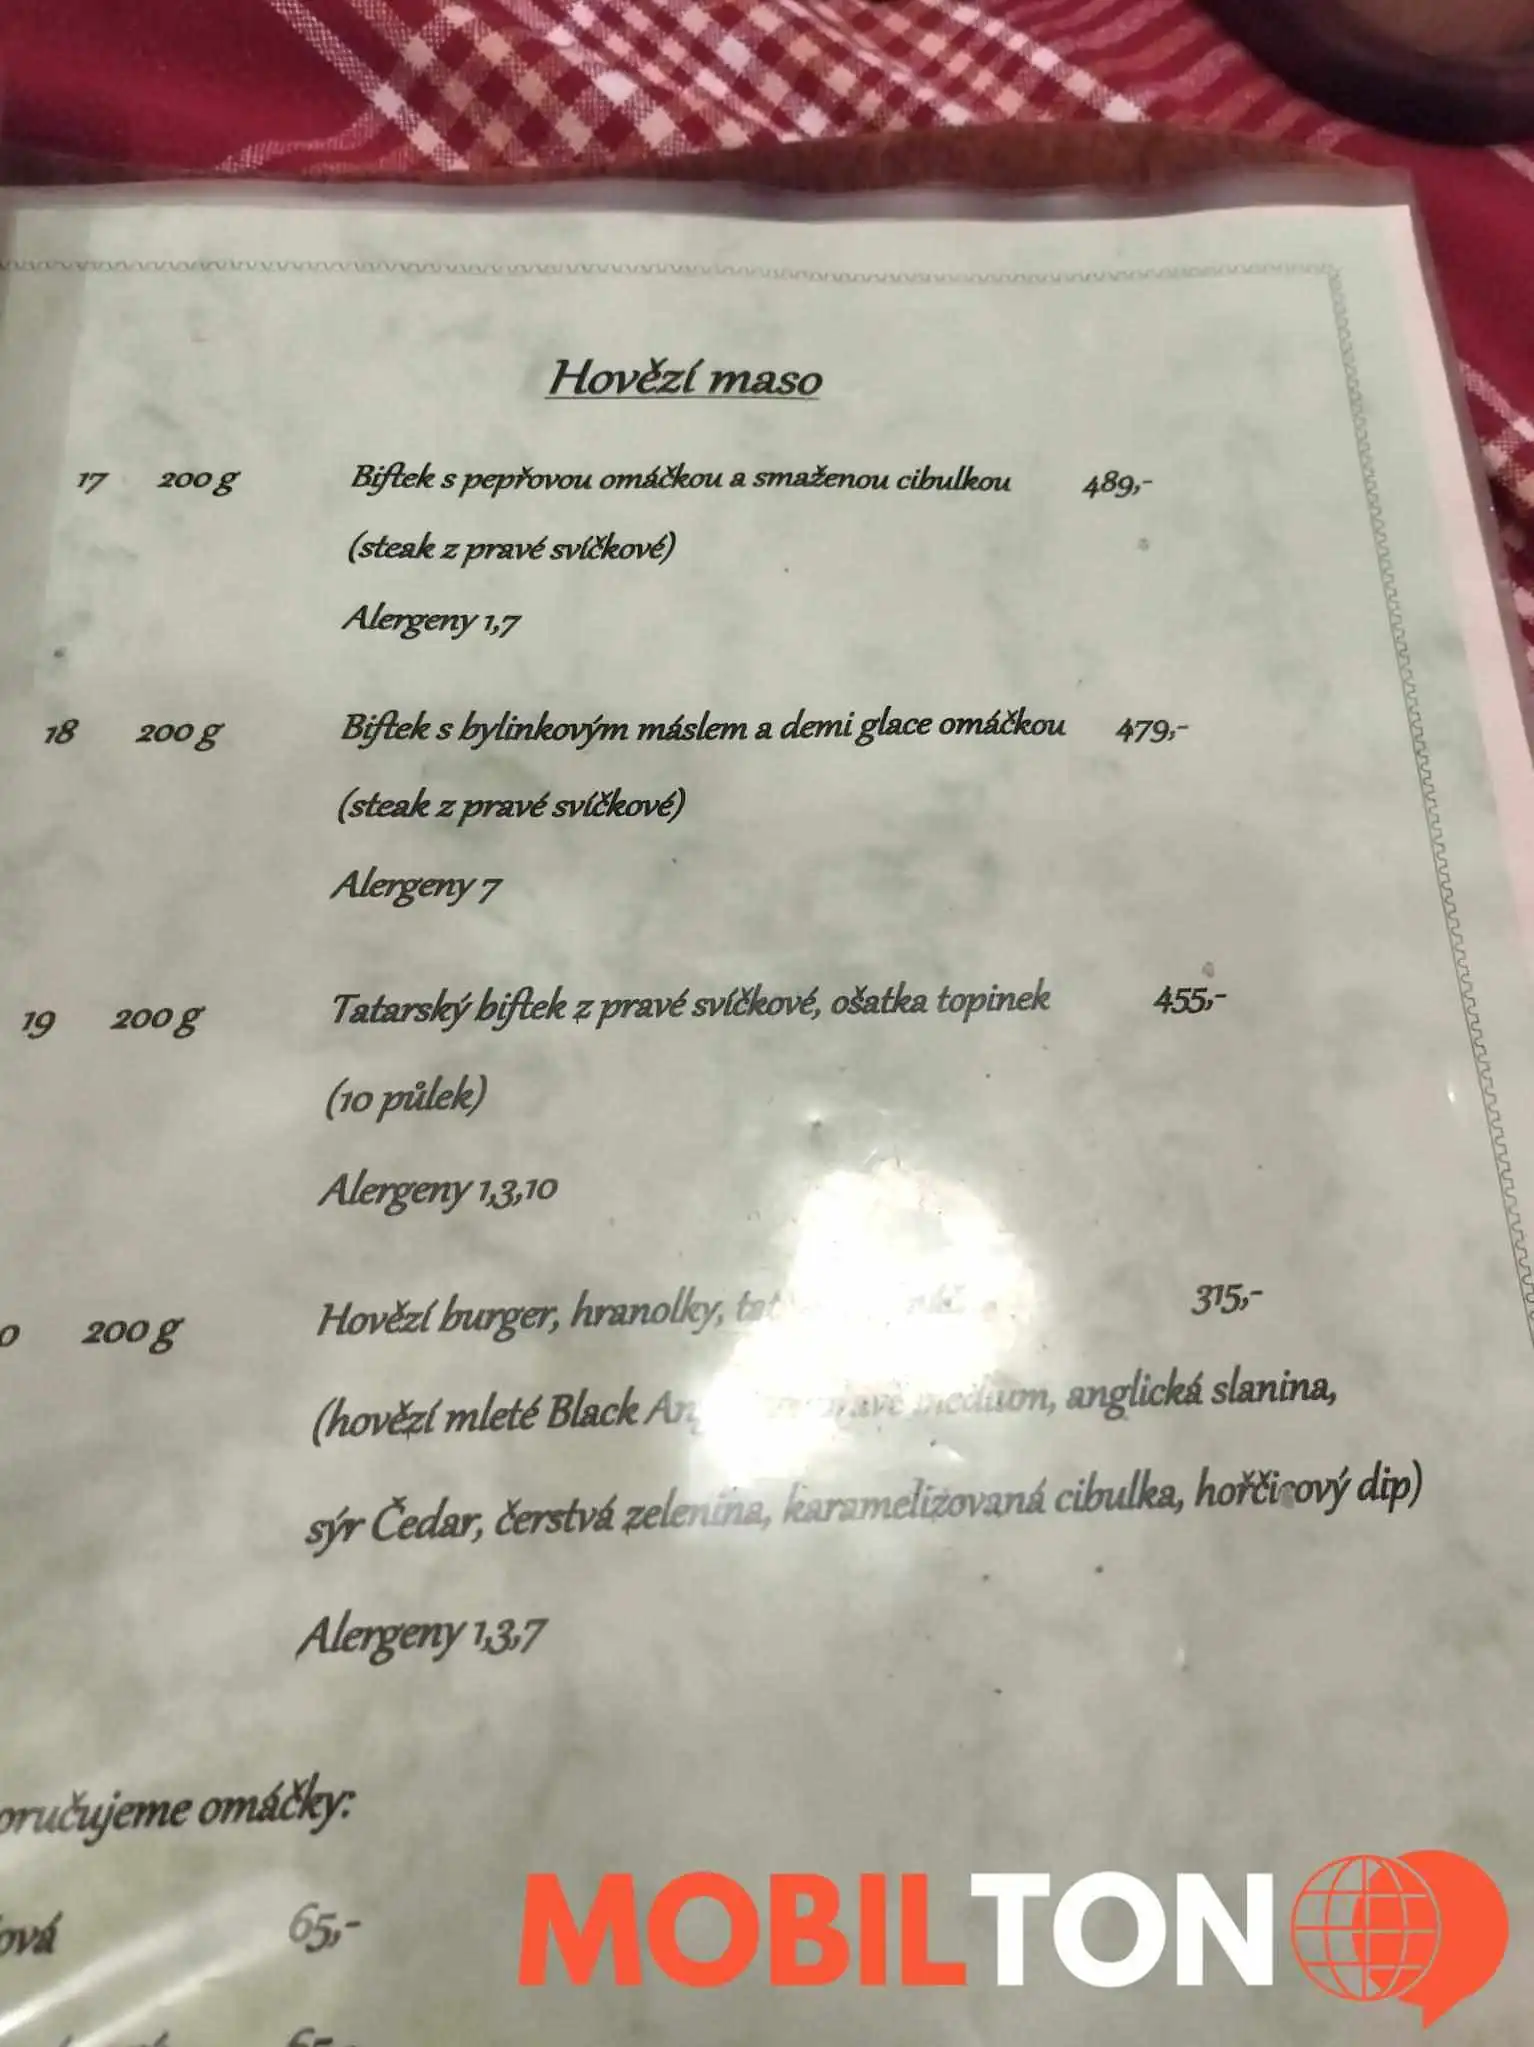 Hovězí maso
17 200 g Biftek s pepřovou omáčkou a smaženou cibulkou 489,-
(steak z pravé svíčkové)
Alergeny 1,7
18 200 g Biftek s bylinkovým máslem a demi glace omáčkou 479,-
(steak z pravé svíčkové)
Alergeny 7
19 200 g Tatarský biftek z pravé svíčkové, ošatka topinek 455,-
(10 půlek)
Alergeny 1,3,10
200 g Hovězí burger, hranolky, 315,-
(hovězí mleté Black medium, anglická slanina,
sýr Čedar, čerstvá zelenina, karamelizovaná cibulka, hořčicový dip)
Alergeny 1,3,7
omáčky:
65,-
MOBILTON